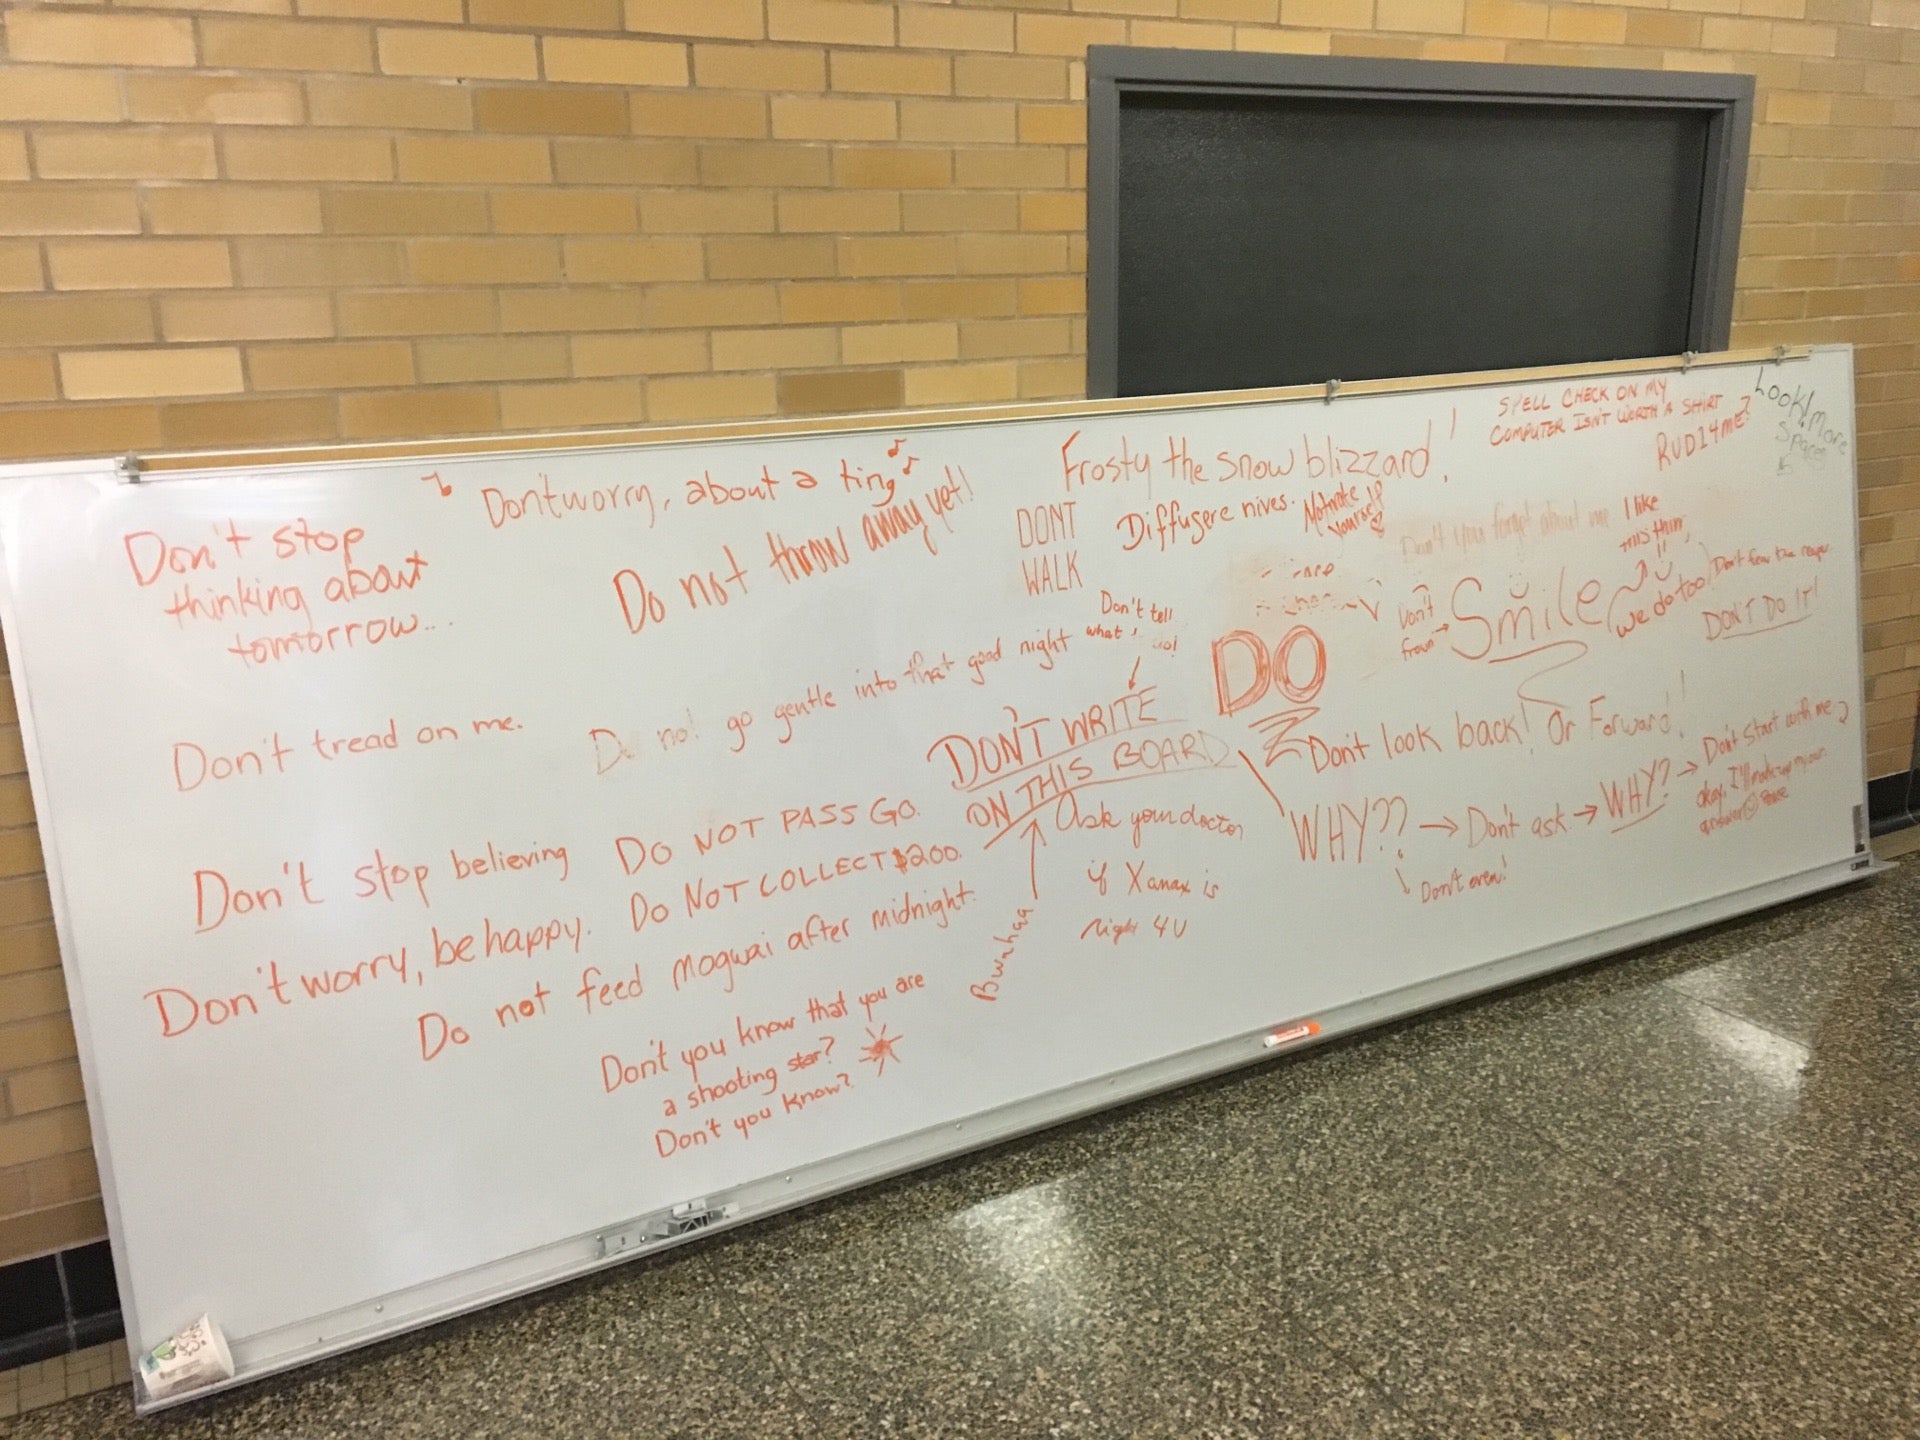 Don't stop
thinking about
tomorrow...
Don't worry, about a ting
Do not throw away yet!
DONT
WALK
Frosty the snow blizzard!
Diffugere nives.
Motivate
Yourself
SPELL CHECK ON MY
COMPUTER ISN'T WORTH A SHIRT
RUDI4me?
Look! more
Spaces
Don't you forget about me
I like
this thin
Don't
frown
Smile
We do too!
Don't fear the reaper
DON'T DO IT!
Don't tread on me.
Do not go gentle into that good night
Don't tell
what
do!
DON'T WRITE
ON THIS BOARD
DO
Don't look back! Or Forward!
WHY?? → Don't ask → WHY? → Don't start with me
Don't even!
okay, I'll make up my own
answer
Don't stop believing
DO NOT PASS GO.
DO NOT COLLECT $200.
Don't worry, be happy.
Do not feed mogwai after midnight.
Bwahaa
Ask your doctor
if Xanax is
right 4U
Don't you know that you are
a shooting star?
Don't you know?